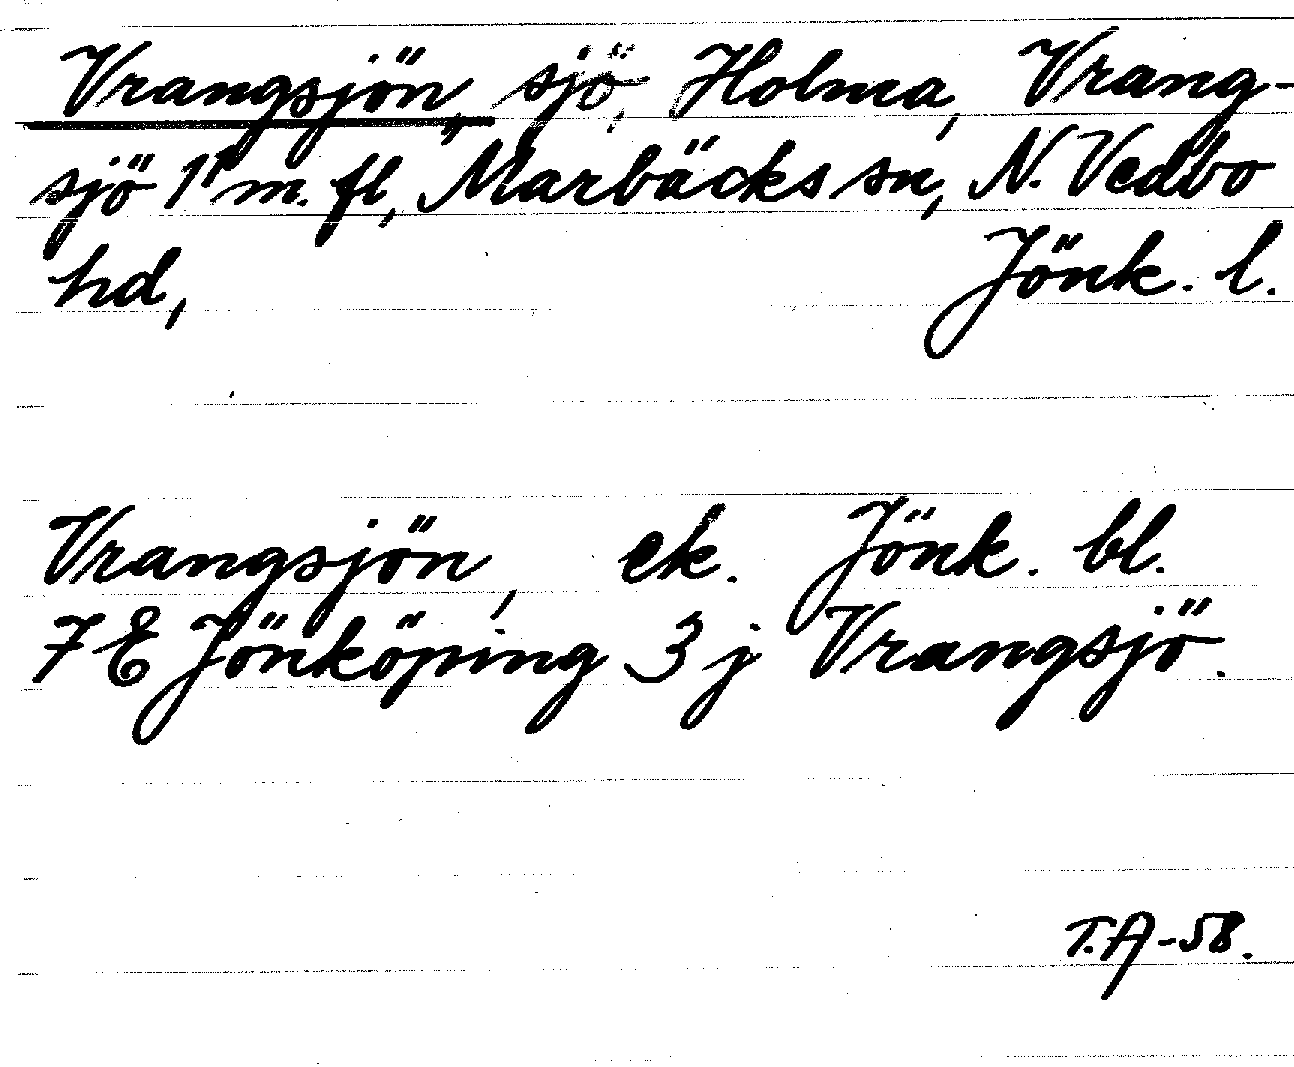 Vrangsjön, sjö, Holma, Vrang-
sjö 1¹ m. fl, Marbäcks sn, N. Vedbo
hd, Jönk. l.
Vrangsjön, ek. Jönk. bl.
7 E Jönköping 3 j Vrangsjö.
T.A-58.